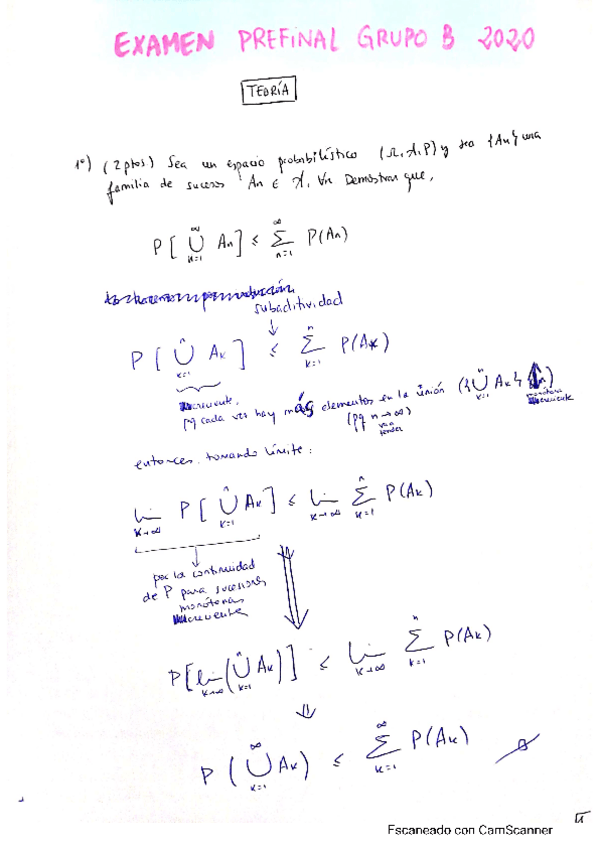 EXAMEN PREFINAL GRUPO B 2020
TEORÍA
1º) (2 ptos) Sea un espacio probabilístico (Ω, A, P) y sea {An} una
familia de sucesos An ∈ A, ∀n Demostrar que,
P[ ∞⋃n=1 An ] ≤ ∞∑n=1 P(An)
subaditividad
↓
P[ n⋃k=1 Ak ] ≤ n∑k=1 P(Ak)
creciente,
pq cada vez hay más elementos en la unión ({n⋃k=1 Ak} ↑)
(pq n→∞)
monótona
creciente
entonces, tomando límite:
lim k→∞ P[ n⋃k=1 Ak ] ≤ lim k→∞ n∑k=1 P(Ak)
por la continuidad
de P para sucesiones
monótonas
creciente
P[ lim k→∞ ( n⋃k=1 Ak ) ] ≤ lim k→∞ n∑k=1 P(Ak)
⇓
P( ∞⋃k=1 Ak ) ≤ ∞∑k=1 P(Ak)
Escaneado con CamScanner